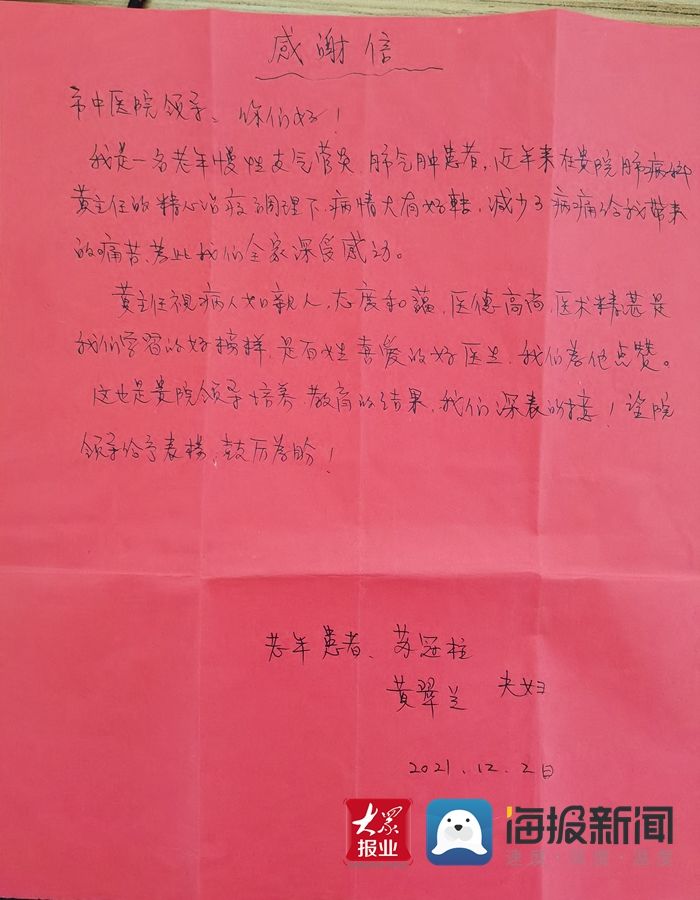 感谢信
市中医院领导、你们好！
我是一名老年慢性支气管炎、肺气肿患者，近年来在贵院肺病科
黄主任的精心治疗调理下，病情大有好转，减少了病痛给我带来
的痛苦，为此我们全家深受感动。
黄主任视病人如亲人，态度和蔼，医德高尚，医术精甚是
我们学习的好榜样，是百姓喜爱的好医生，我们为他点赞。
这也是贵院领导培养、教育的结果，我们深表的谢！望院
领导给予表扬，鼓厉为盼！
老年患者、苏冠柱
黄翠兰 夫妇
2021.12.2日
大众报业
海报新闻
速度·深度·温度